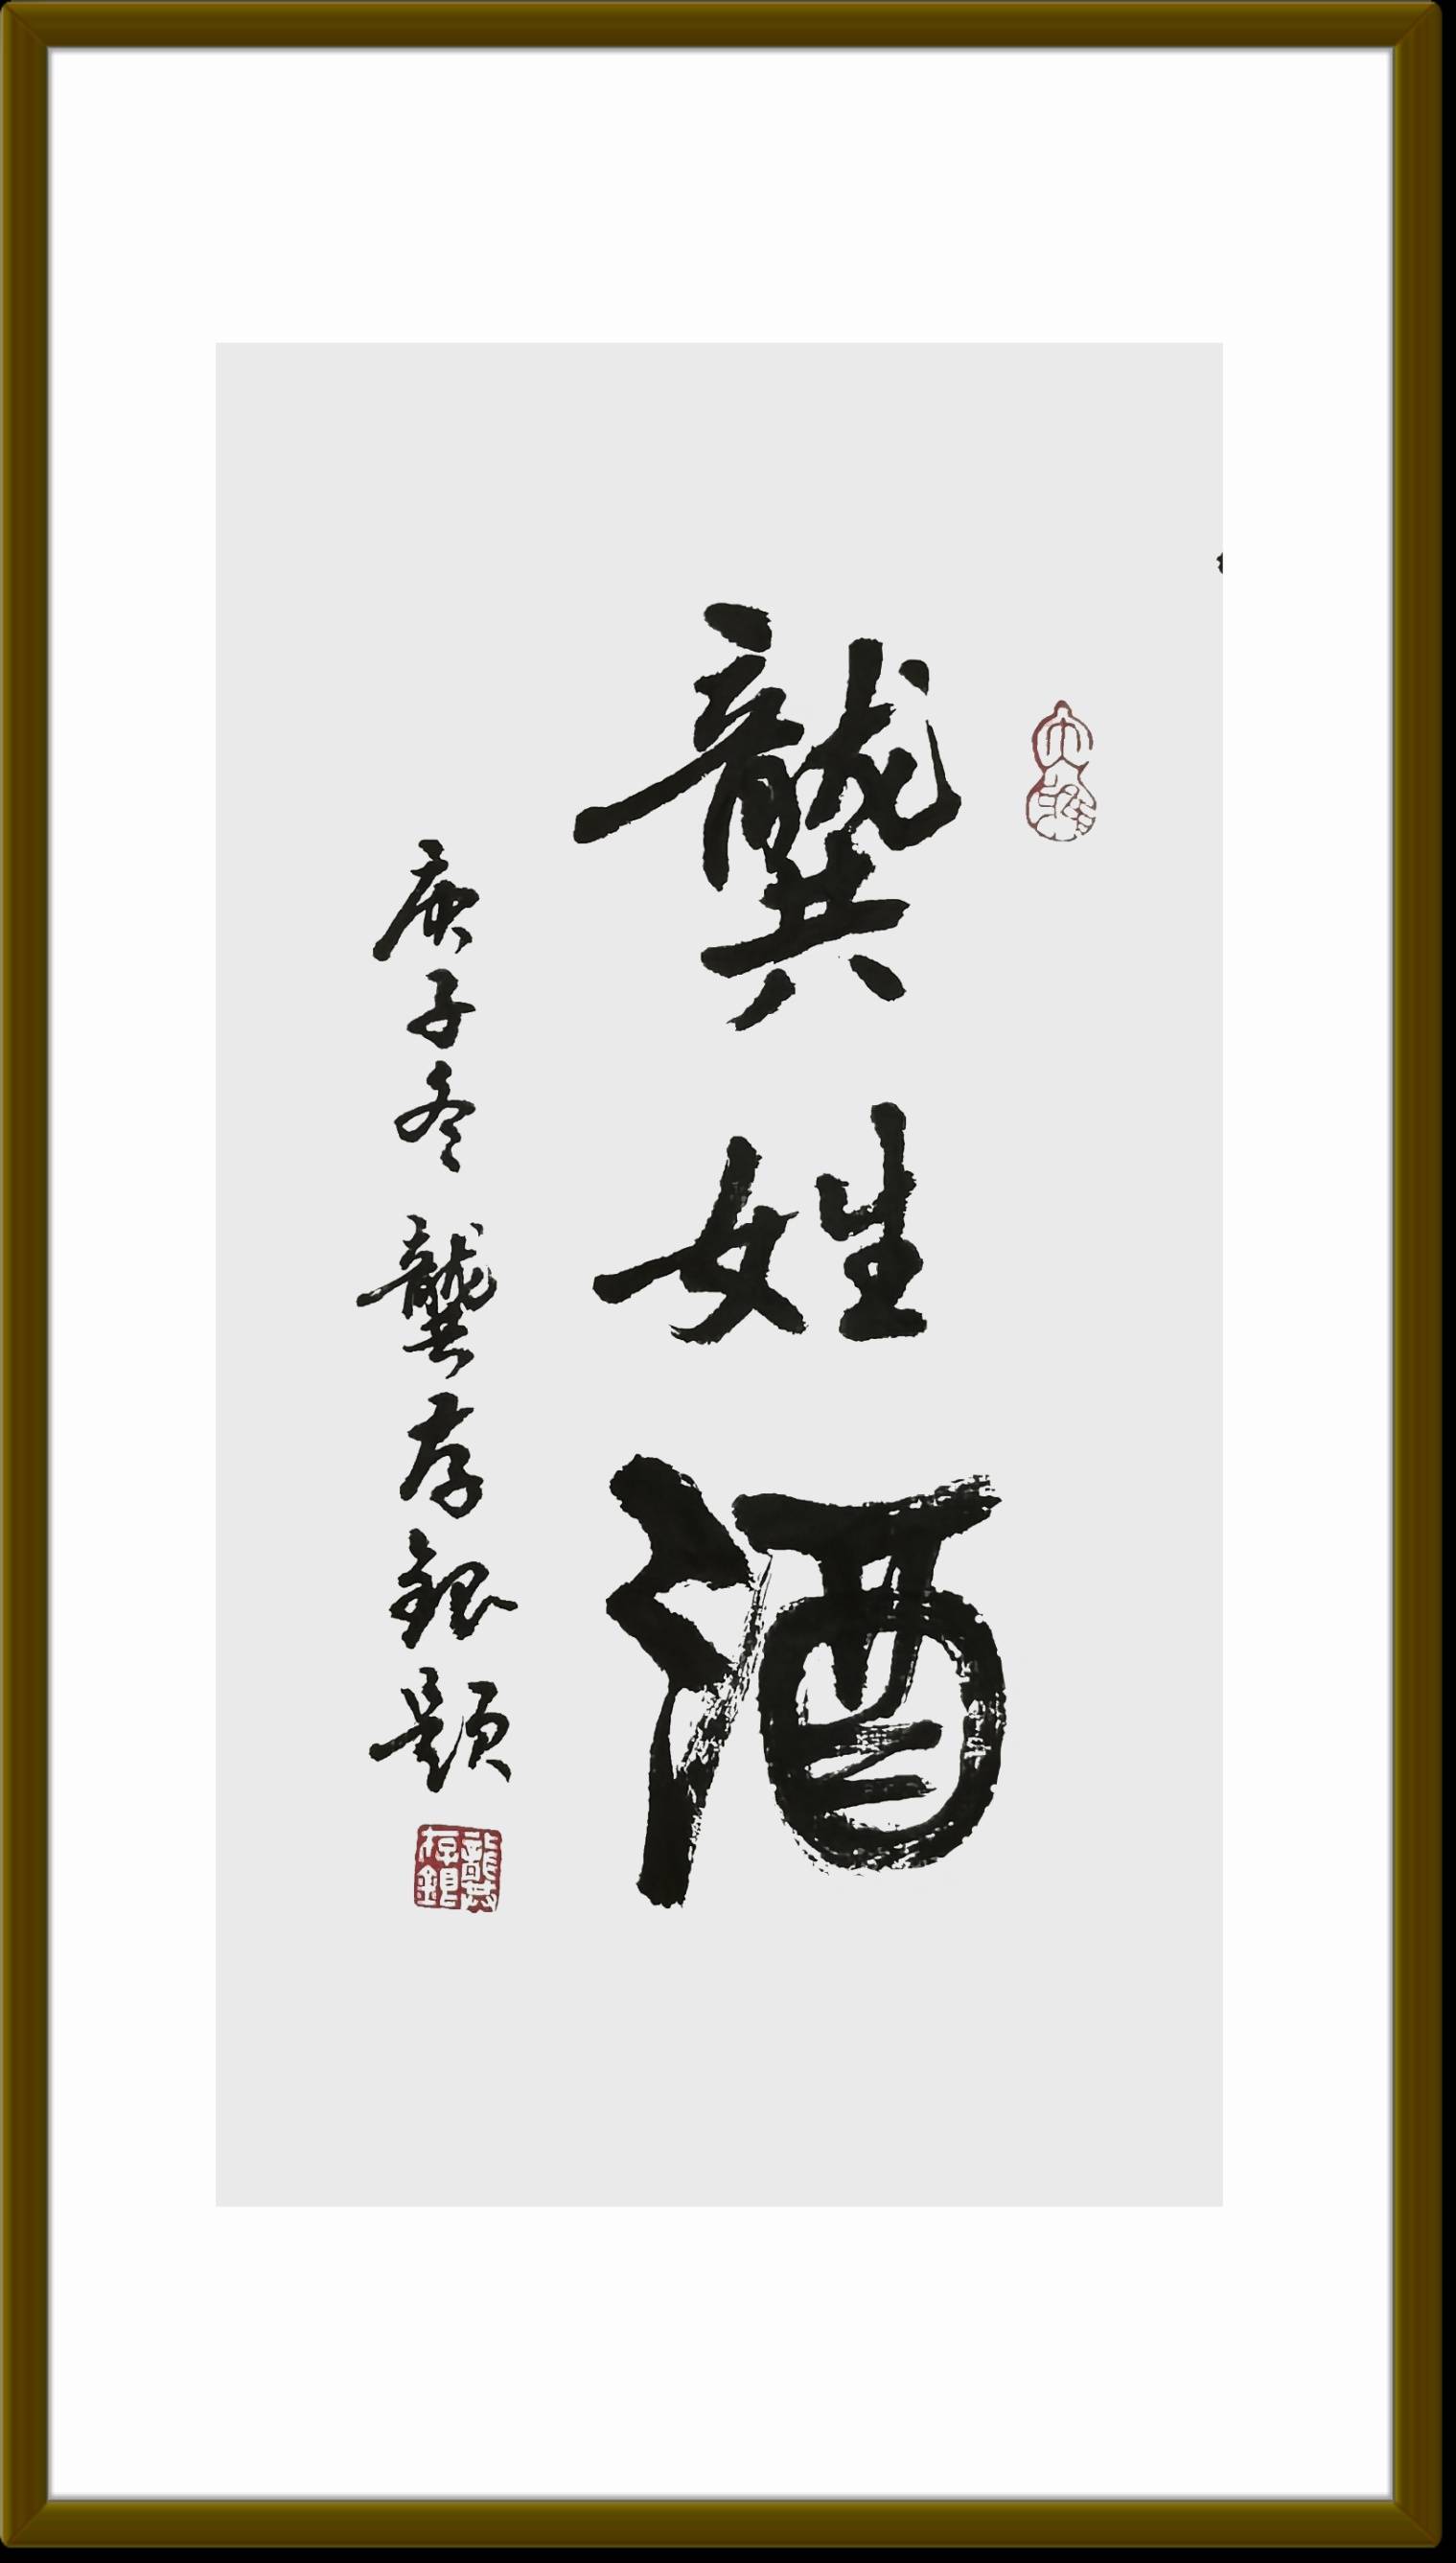 龔姓酒
庚子冬龔存銀題
龔存銀